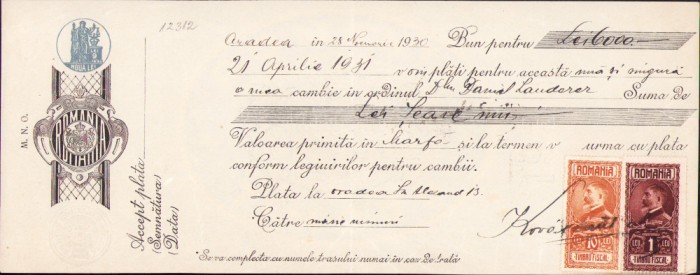 12312
NOUĂ LEI
M. N. O.
ROMANIA
Accept plata
(Semnătura)
(Data)
Oradea în 28 Noemvrie 1930 Bun pentru Lei 6000.-
21 Aprilie 1931 voiu plăti pentru această una și singură
a mea cambie în ordinul Dlui Daniel Lauderer Suma de
Lei Șease mii
Valoarea primită în Marfă și la termen v urma cu plata
conform legiuirilor pentru cambii.
Plata la Oradea
Către
*Se va complecta cu numele trasului numai în caz de trată
ROMANIA
10 LEI
TIMBRU FISCAL
ROMANIA
LEU 1 LEU
TIMBRU FISCAL